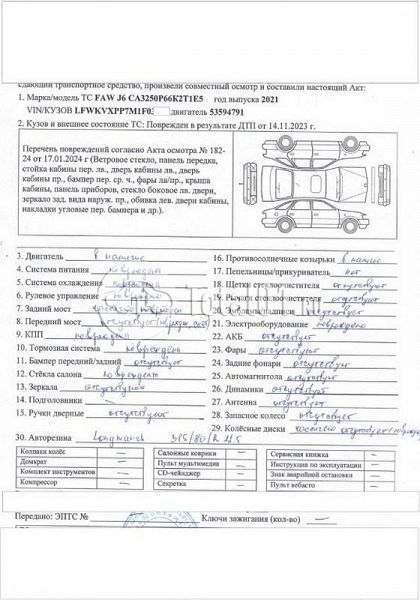 сдающий транспортное средство, произвели совместный осмотр и составили настоящий Акт:
1. Марка/модель ТС FAW J6 CA3250P66K2T1E5 год выпуска 2021
VIN/КУЗОВ LFWKVXPP7M1F0 двигатель 53594791
2. Кузов и внешнее состояние ТС: Поврежден в результате ДТП от 14.11.2023 г.
Перечень повреждений согласно Акта осмотра № 182-
24 от 17.01.2024 г (Ветровое стекло, панель передка,
стойка кабины пер. лв., дверь кабины лв., дверь
кабины пр., бампер пер. ср. ч., фары лв/пр., крыша
кабины, панель приборов, стекло боковое лв. двери,
зеркало зад. вида наруж. пр., обивка лев. двери кабины,
накладки угловые пер. бампера и др.).
3. Двигатель в наличие
4. Система питания повреждена
5. Система охлаждения
6. Рулевое управление повреждено
7. Задний мост
8. Передний мост отсутствует
9. КПП повреждена
10. Тормозная система повреждены
11. Бампер передний/задний отсутствует
12. Стёкла салона повреждены
13. Зеркала отсутствуют
14. Подголовники –
15. Ручки дверные отсутствует
16. Противосолнечные козырьки в наличие
17. Пепельницы/прикуриватель нет
18. Щетки стеклоочистителя отсутствует
19. Рычаги стеклоочистителя отсутствует
20. Эмблемы/надписи отсутствует
21. Электрооборудование повреждено
22. АКБ отсутствует
23. Фары отсутствует
24. Задние фонари отсутствуют
25. Автомагнитола отсутствует
26. Динамики отсутствует
27. Антенна отсутствует
28. Запасное колесо отсутствует
29. Колёсные диски частично отсутствует
30. Авторезина Longmarch 385/80/R 22.5
Колпаки колёс – Салонные коврики – Сервисная книжка –
Домкрат – Пульт мультимедиа – Инструкция по эксплуатации –
Комплект инструментов – CD-чейнджер – Знак аварийной остановки –
Компрессор – Секретка – Пульт вебасто –
Передано: ЭПТС № – Ключи зажигания (кол-во) –